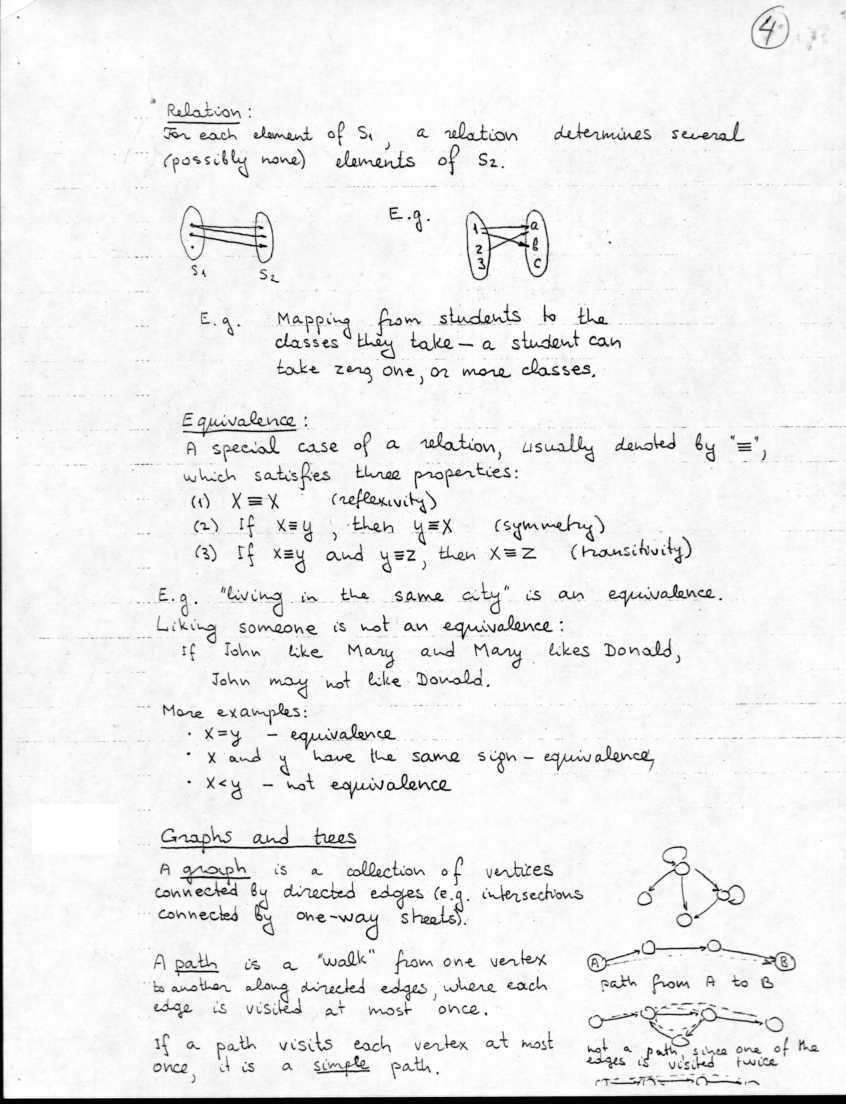 4
Relation:
For each element of S1, a relation determines several
(possibly none) elements of S2.
E.g.
1 a
2 b
3 c
S1 S2
E.g. Mapping from students to the
classes they take – a student can
take zero, one, or more classes.
Equivalence:
A special case of a relation, usually denoted by "≡",
which satisfies three properties:
(1) x≡x (reflexivity)
(2) If x≡y, then y≡x (symmetry)
(3) If x≡y and y≡z, then x≡z (transitivity)
E.g. "living in the same city" is an equivalence.
Liking someone is not an equivalence:
If John like Mary and Mary likes Donald,
John may not like Donald.
More examples:
· x=y – equivalence
· x and y have the same sign – equivalence,
· x<y – not equivalence
Graphs and trees
A graph is a collection of vertices
connected by directed edges (e.g. intersections
connected by one-way streets).
A path is a "walk" from one vertex
to another along directed edges, where each
edge is visited at most once.
A B
path from A to B
If a path visits each vertex at most
once, it is a simple path.
not a path, since one of the
edges is visited twice